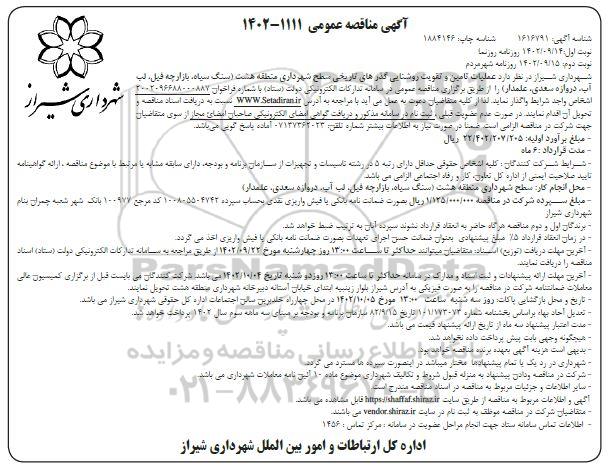 آگهی مناقصه عمومی ۱۱۱۱-۱۴۰۲
شناسه آگهی: ۱۶۱۶۷۹۱ شناسه چاپ: ۱۸۸۴۱۴۶
نوبت اول: ۱۴۰۲/۰۹/۱۴ روزنامه روزنما
نوبت دوم: ۱۴۰۲/۰۹/۱۵ روزنامه شهرمردم
شهرداری شیراز
شهرداری شیراز در نظر دارد عملیات تامین و تقویت روشنایی گذر های تاریخی سطح شهرداری منطقه هشت (سنگ سیاه، بازارچه فیل، لپ
آب، دروازه سعدی، علمدار) را از طریق برگزاری مناقصه عمومی در سامانه تدارکات الکترونیکی دولت (ستاد) با شماره فراخوان ۲۰۰۲۰۹۶۶۸۸۰۰۰۸۸۷ به
اشخاص واجد شرایط واگذار نماید. لذا از کلیه متقاضیان دعوت به عمل می آید با مراجعه به آدرس WWW.Setadiran.ir نسبت به دریافت اسناد مناقصه و
تحویل آن اقدام نمایند. در صورت عدم عضویت قبلی، ثبت نام در سامانه مذکور و دریافت گواهی امضای الکترونیکی صاحبان امضای مجاز از سوی متقاضیان
جهت شرکت در مناقصه الزامی است. ضمنا در صورت نیاز به اطلاعات بیشتر شماره تلفن: ۰۷۱۳۷۳۶۲۰۲۳ آماده پاسخ گویی می‌باشد.
- مبلغ برآورد اولیه: ۲۲/۴۰۲/۲۰۷/۲۰۵ ریال
- مدت قرارداد: ۶ ماه
- شرایط شرکت کنندگان: کلیه اشخاص حقوقی حداقل دارای رتبه ۵ در رشته تاسیسات و تجهیزات از سازمان برنامه و بودجه، دارای سابقه مشابه یا مرتبط با موضوع مناقصه ، ارائه گواهینامه
تایید صلاحیت ایمنی از اداره کل تعاون، کار و رفاه اجتماعی الزامی می باشد.
- محل انجام کار: سطح شهرداری منطقه هشت (سنگ سیاه، بازارچه فیل، لپ آب، دروازه سعدی، علمدار)
- مبلغ سپرده شرکت در مناقصه ۱/۱۲۵/۰۰۰/۰۰۰ ریال بصورت ضمانت نامه بانکی یا فیش واریزی نقدی بحساب سپرده ۱۰۰۸۰۵۵۰۴۷۴۲ کد مرجع ۱۰۰۹۷۷ بانک شهر شعبه چمران بنام
شهرداری شیراز
- برندگان اول و دوم مناقصه هرگاه حاضر به انعقاد قرارداد نشوند سپرده آنان به ترتیب ضبط خواهد شد.
- در زمان انعقاد قرارداد ۵٪ مبلغ پیشنهادی بعنوان ضمانت حسن اجرای تعهدات بصورت ضمانت نامه بانکی یا فیش واریزی اخذ می گردد.
- آخرین مهلت دریافت (توزیع) اسناد: متقاضیان میتوانند حداکثر تا ساعت ۱۳:۰۰ روز چهارشنبه مورخ ۱۴۰۲/۰۹/۲۲ از طریق مراجعه به سامانه تدارکات الکترونیکی دولت (ستاد) اسناد
مناقصه را دریافت نمایند.
- آخرین مهلت ارائه پیشنهادات و ثبت اسناد و مدارک در سامانه حداکثر تا ساعت ۱۳:۰۰ روز دو شنبه تاریخ ۱۴۰۲/۱۰/۰۴ می باشد. شرکت کنندگان می بایست قبل از برگزاری کمیسیون عالی
معاملات ضمانتنامه شرکت در مناقصه را به صورت فیزیکی به آدرس شیراز بلوار زینبیه ابتدای خیابان آستانه دبیرخانه شهرداری منطقه هشت تحویل نمایند.
- تاریخ و محل بازگشایی پاکات: روز سه شنبه ساعت ۱۳:۰۰ مورخ ۱۴۰۲/۱۰/۰۵ در محل چهارراه خلدبرین سالن اجتماعات اداره کل حقوقی شهرداری شیراز می باشد.
- تعدیل آحاد بهاء براساس بخشنامه شماره ۱۰۱/۱۷۳۰۷۳ تاریخ ۸۲/۹/۱۵ سازمان برنامه و بودجه بر مبنای سه ماهه سوم سال ۱۴۰۲ پرداخت خواهد شد.
- مدت اعتبار پیشنهاد سه ماه از تاریخ ارائه پیشنهاد قیمت می باشد.
- هیچگونه وجهی بابت پیش پرداخت داده نخواهد شد.
- بدیهی است هزینه آگهی بعهده برنده مناقصه خواهد بود.
- شهرداری در رد یک یا تمام پیشنهادها مختار میباشد در اینصورت سپرده ها مسترد می گردد.
- شرکت در مناقصه ودادن پیشنهاد به منزله قبول شروط و تکالیف شهرداری موضوع ماده ۱۰ آئین نامه معاملات شهرداری می باشد.
- سایر اطلاعات و جزئیات مربوط به مناقصه در اسناد مناقصه مندرج است
آگهی و اطلاعات مربوط به مناقصه از طریق سایت https://shaffaf.shiraz.ir قابل مشاهده می باشد.
- متقاضیان شرکت در مناقصه موظف به ثبت نام در سایت vendor.shiraz.ir می باشند.
- اطلاعات تماس سامانه ستاد جهت انجام مراحل عضویت در سامانه : مرکز تماس : ۱۴۵۶
اداره کل ارتباطات و امور بین الملل شهرداری شیراز